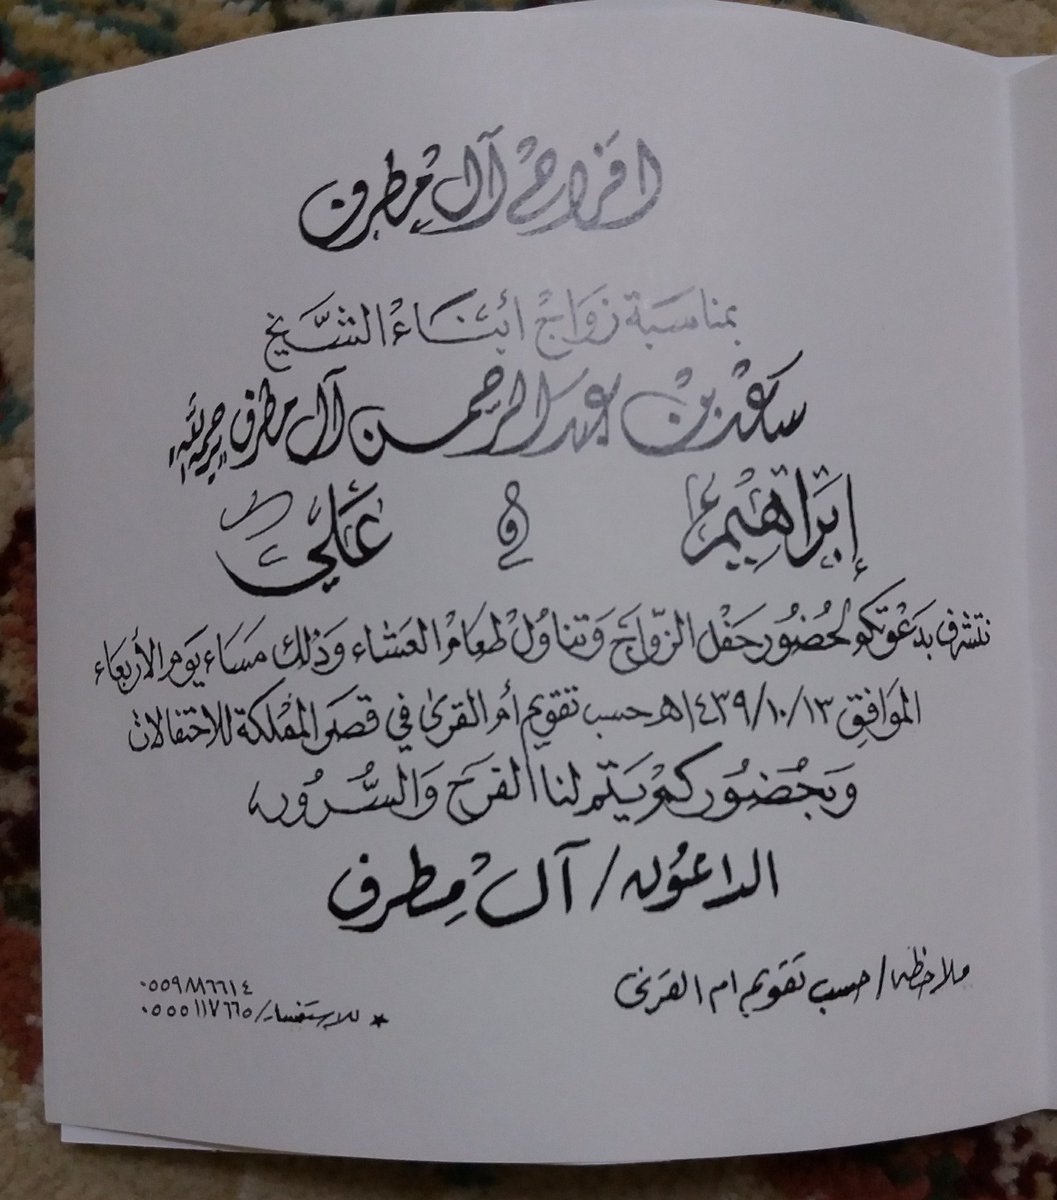 افراح آل مطرف
بمناسبة زواج أبناء الشيخ
سعد بن عبدالرحمن آل مطرف رحمه الله
إبراهيم و علي
نتشرف بدعوتكم لحضور حفل الزواج وتناول طعام العشاء وذلك مساء يوم الأربعاء
الموافق ١٤٣٩/١٠/١٣هـ حسب تقويم أم القرى في قصر المملكة للاحتفالات
وبحضوركم يتم لنا الفرح والسرور
الداعون / آل مطرف
ملاحظه / حسب تقويم ام القرى
٠٥٥٩٨٨٦٦١٤
* للاستفسار / ٠٥٥٥١١٧٦٦٥